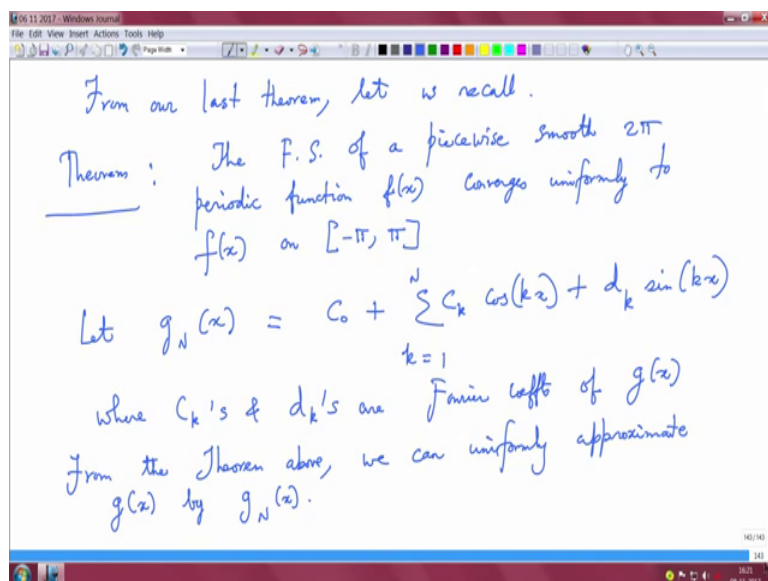 06 11 2017 - Windows Journal
File Edit View Insert Actions Tools Help
Page Width
From our last theorem, let us recall.
Theorem : The F.S. of a piecewise smooth 2π
periodic function f(x) converges uniformly to
f(x) on [-π, π]
Let g_N(x) = C_0 + \sum_{k=1}^{N} C_k cos(kx) + d_k sin(kx)
where C_k's & d_k's are Fourier coffts of g(x)
From the Theorem above, we can uniformly approximate
g(x) by g_N(x).
143/143
143
16:21